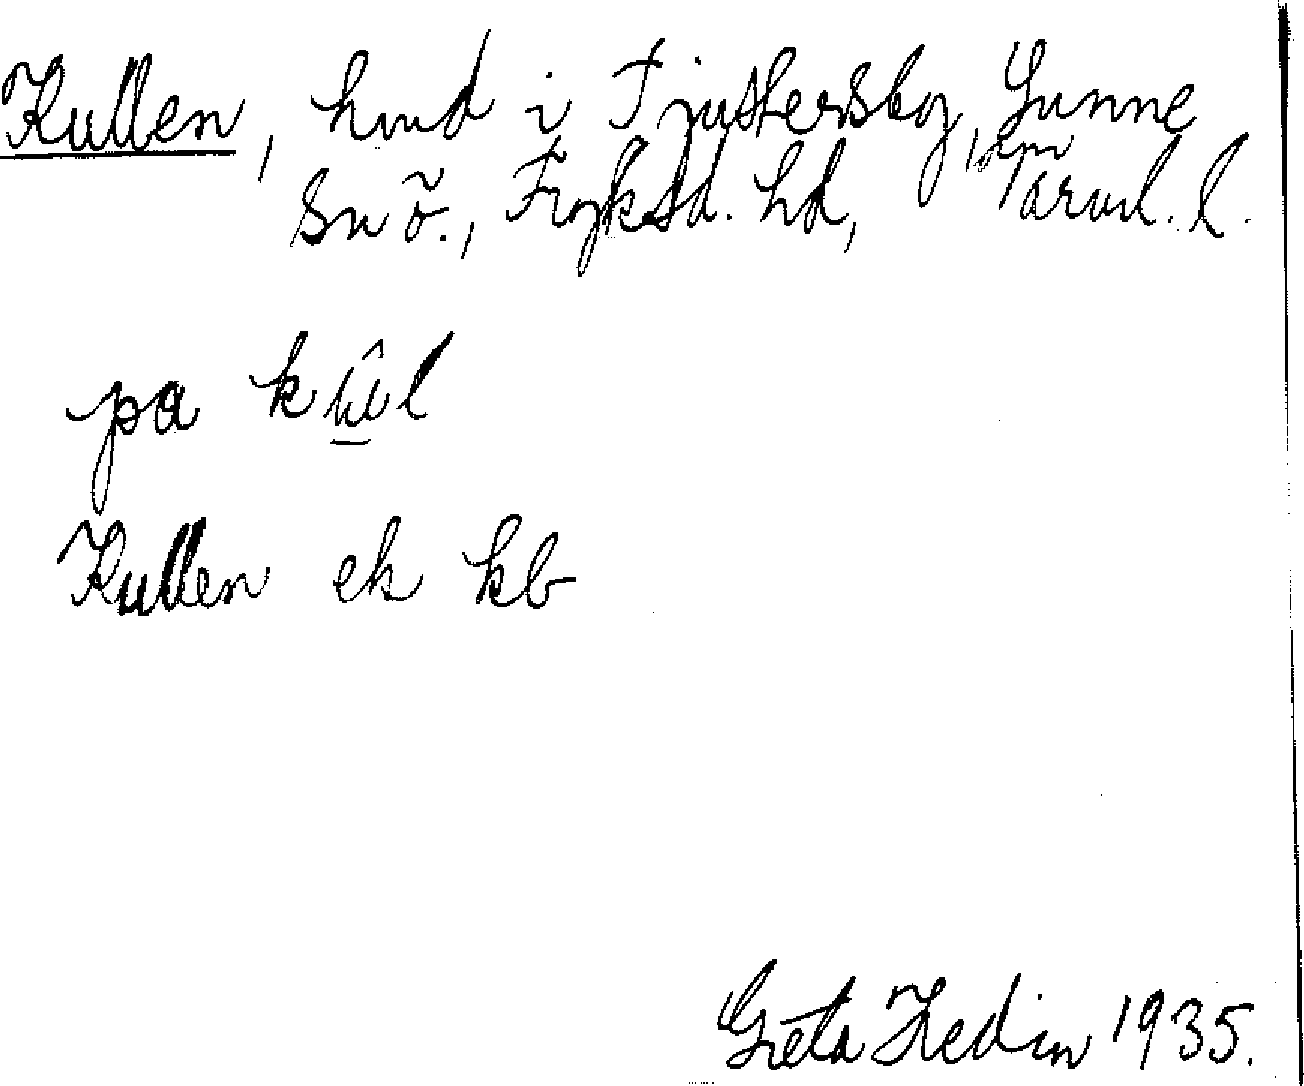 Kullen, hmd i Tjustersby, Sunne
sn ö., Fryksd. hd, Värml. l.
pa kûl
Kullen ek kb
Greta Hedin 1935.